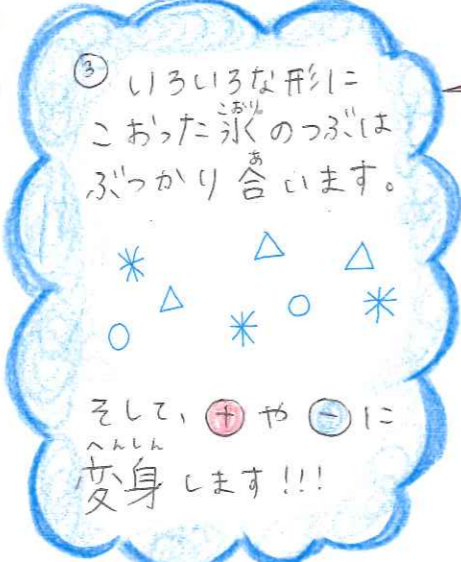 ③ いろいろな形に
こおった氷のつぶは
ぶつかり合います。
そして、⊕や⊖に
変身します!!!